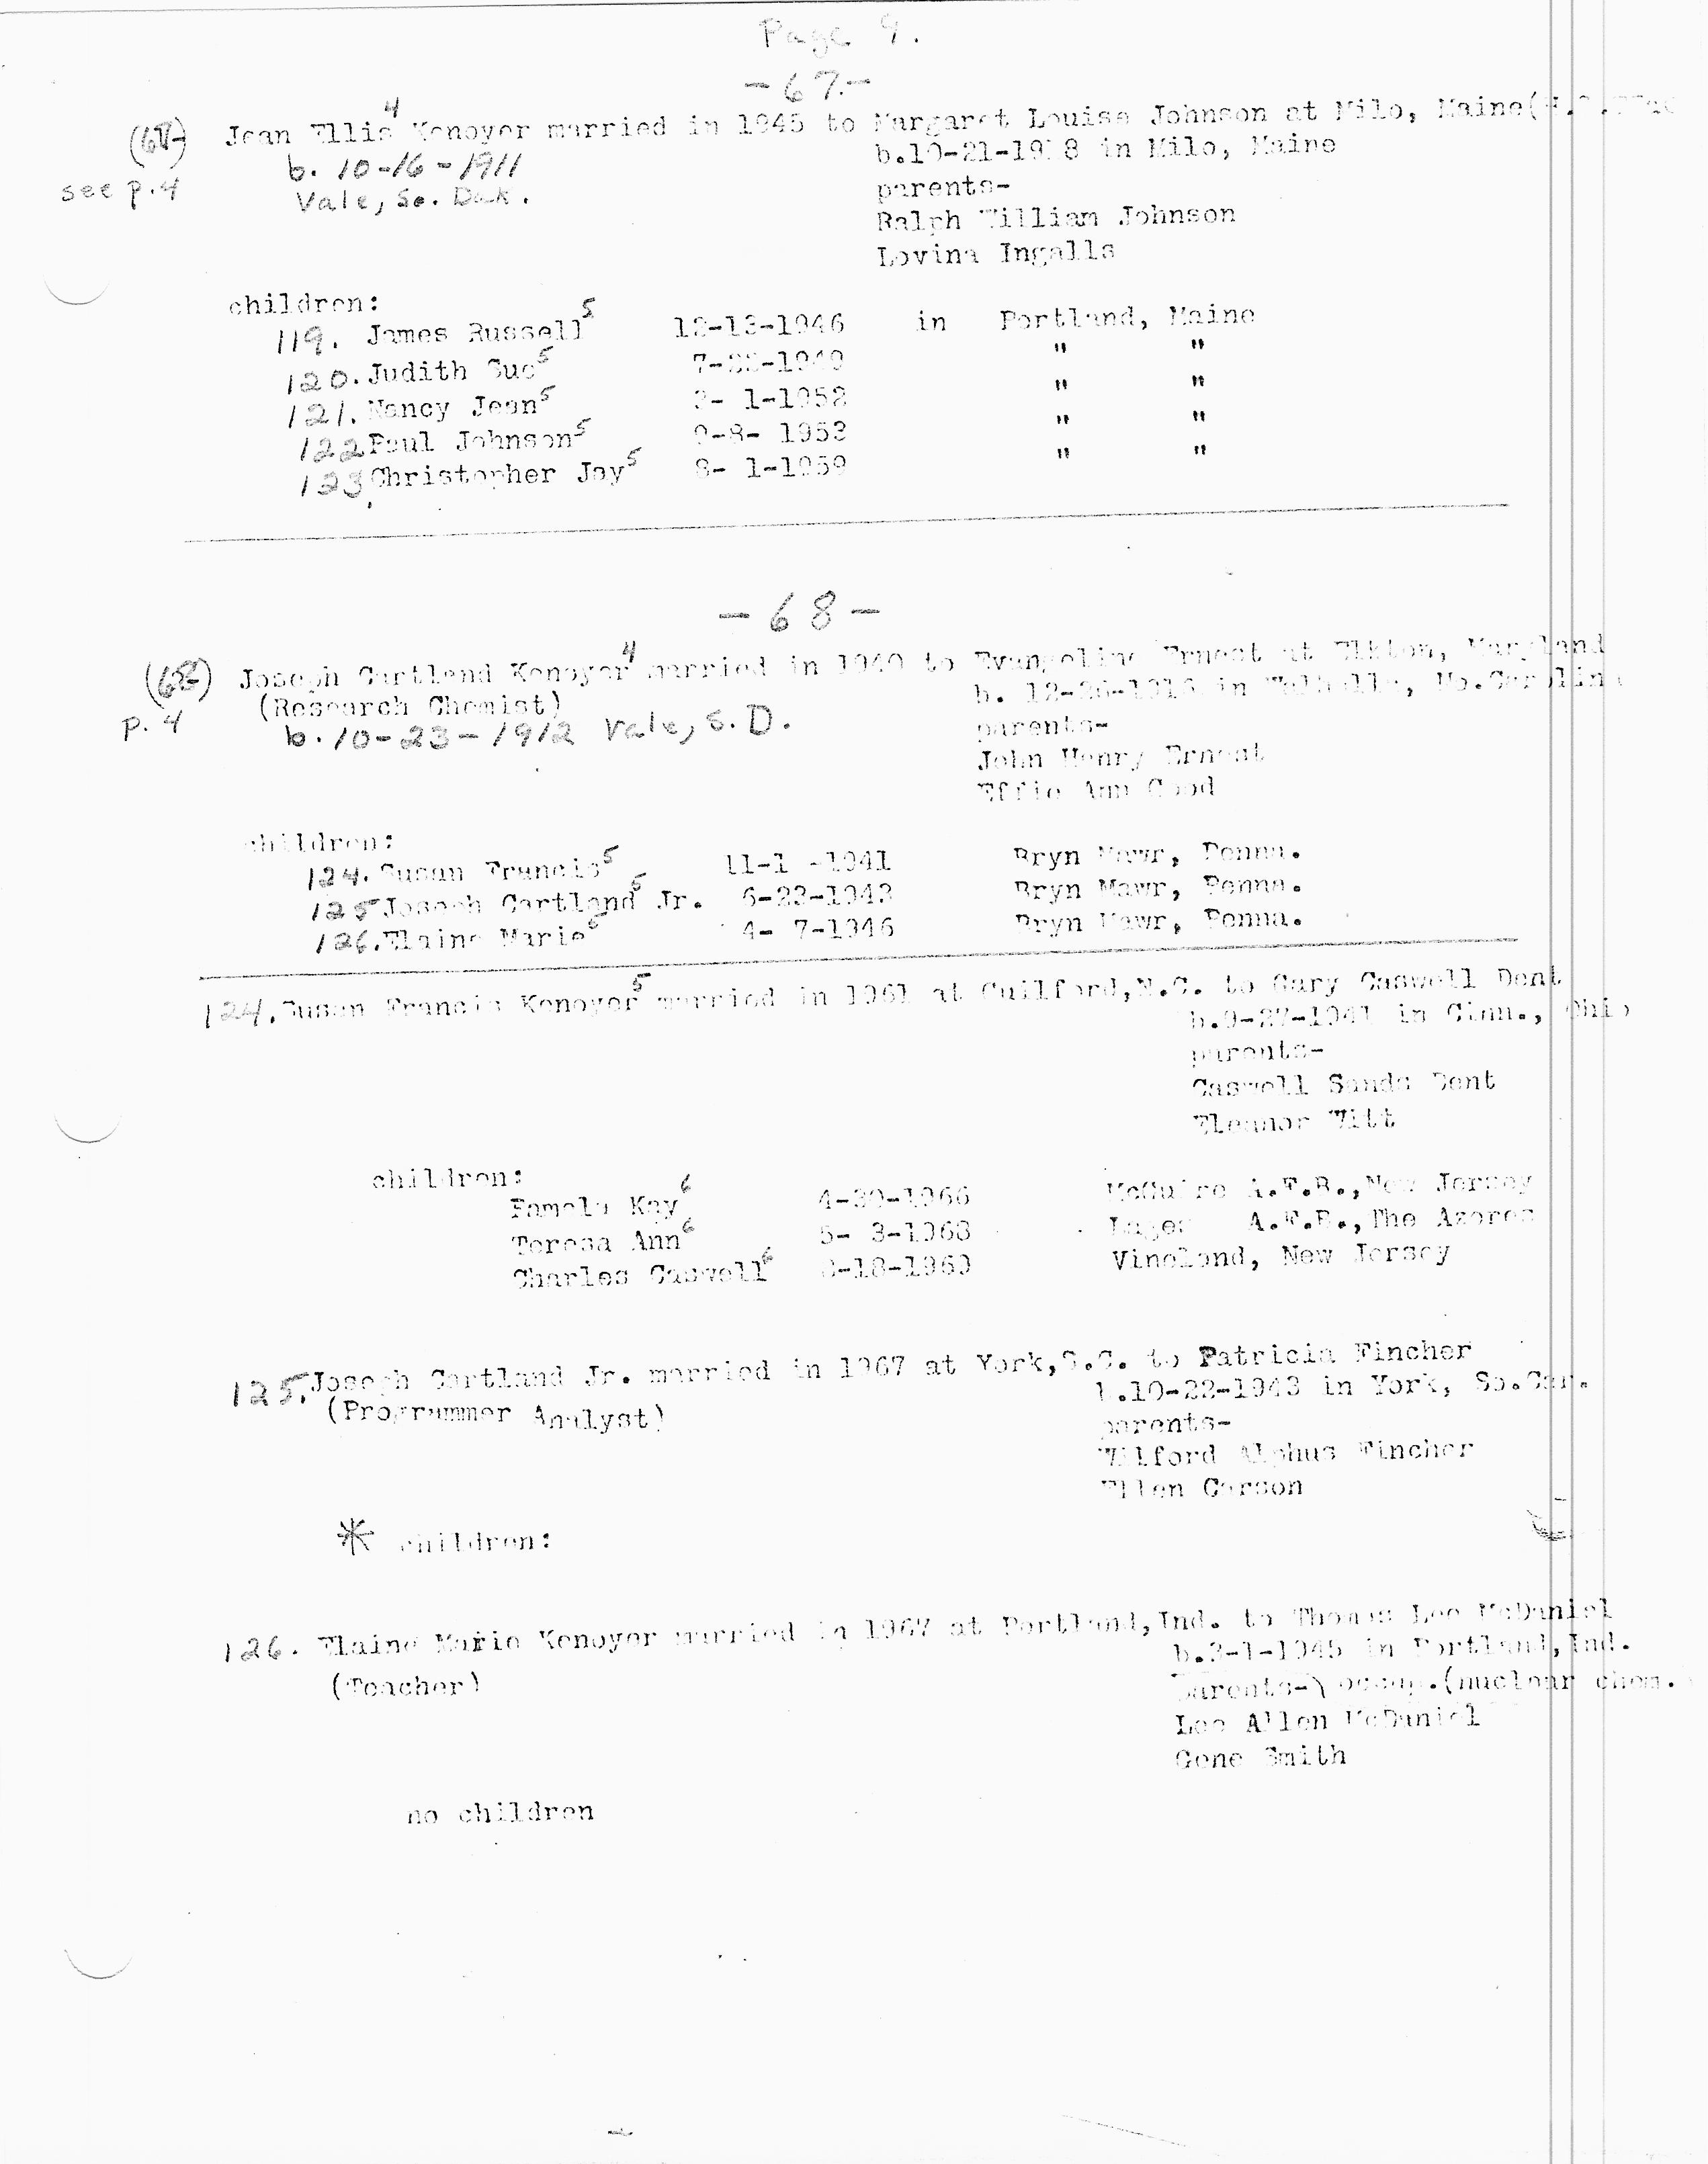 Page 9.
-67-
(67) Jean Ellis⁴ Kenoyer married in 1945 to Margaret Louise Johnson at Milo, Maine
b. 10-16-1911 b.10-21-19 8 in Milo, Maine
see p.4 Vale, So. Dak. parents-
Ralph William Johnson
Lovina Ingalls
children:
119. James Russell⁵ 12-13-1946 in Portland, Maine
120. Judith Sue⁵ 7-22-1949 " "
121. Nancy Jean⁵ 1-1952 " "
122 Paul Johnson⁵ 9-8- 1953 " "
123. Christopher Jay⁵ 8- 1-1959 " "
-68-
(68) Joseph Cartland Kenoyer⁴ married in 1940 to Evangeline Ernest at Elkton, Maryland
(Research Chemist) b. 12-26-1916 in Valhalla, No.Carolina
p. 4 b. 10-23-1912 Vale, S.D. parents-
John Henry Ernest
Effie Ann Good
children:
124. Susan Francis⁵ 11-1 -1941 Bryn Mawr, Penna.
125 Joseph Cartland⁵ Jr. 6-23-1943 Bryn Mawr, Penna.
126. Elaine Marie⁵ 4- 7-1946 Bryn Mawr, Penna.
124. Susan Francis Kenoyer⁵ married in 1961 at Guilford,N.C. to Gary Caswell Dent
b.9-27-1941 in Cinn., Ohio
parents-
Caswell Sands Dent
Eleanor Witt
children:
Pamela Kay⁶ 4-30-1966 McGuire A.F.B.,New Jersey
Teresa Ann⁶ 5- 3-1968 Lages A.F.B.,The Azores
Charles Caswell⁶ -18-1969 Vineland, New Jersey
125. Joseph Cartland Jr. married in 1967 at York,S.C. to Patricia Fincher
(Programmer Analyst) b.10-22-1943 in York, So.Car.
parents-
Wilford Alphus Fincher
Ellen Carson
* children:
126. Elaine Marie Kenoyer married in 1967 at Portland,Ind. to Thomas Lee McDaniel
b.3-1-1945 in Portland,Ind.
(Teacher) parents-) occup.(nuclear chem.
Lee Allen McDaniel
Gene Smith
no children